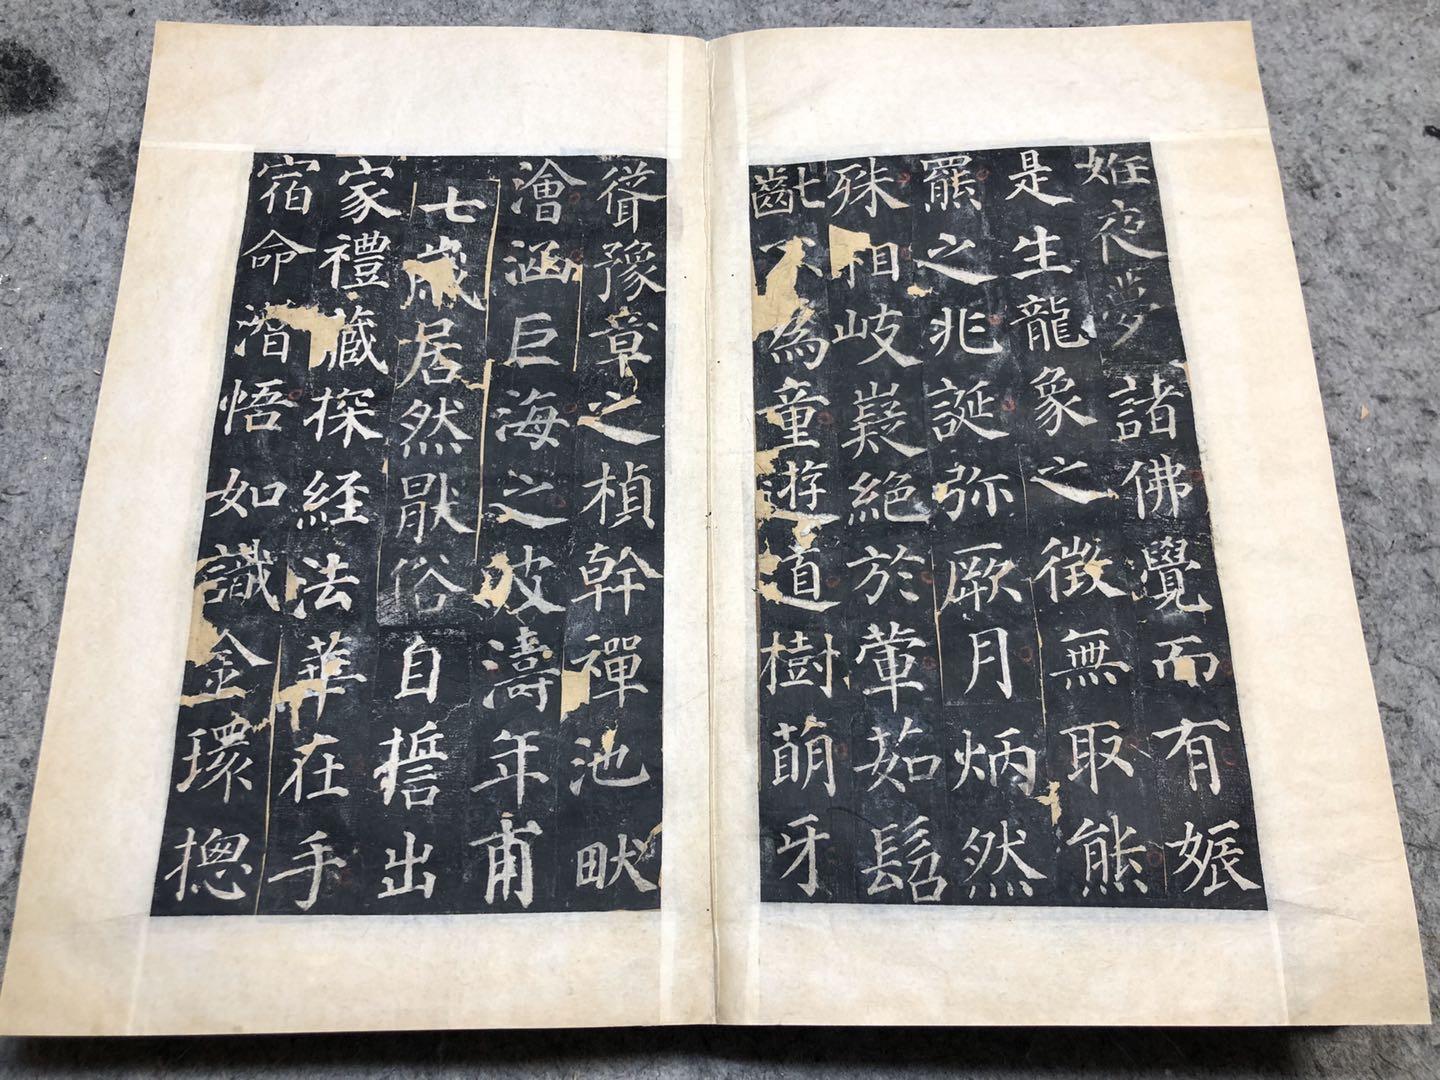 姙夜夢諸佛覺而有娠
是生龍象之徵無取熊
羆之兆誕弥厥月炳然
殊相岐嶷絕於葷茹髫
齔不為童遊道樹萌牙
聳豫章之楨幹禪池畎
澮涵巨海之波濤年甫
七歲居然猒俗自誓出
家禮藏探經法華在手
宿命潛悟如識金環摠